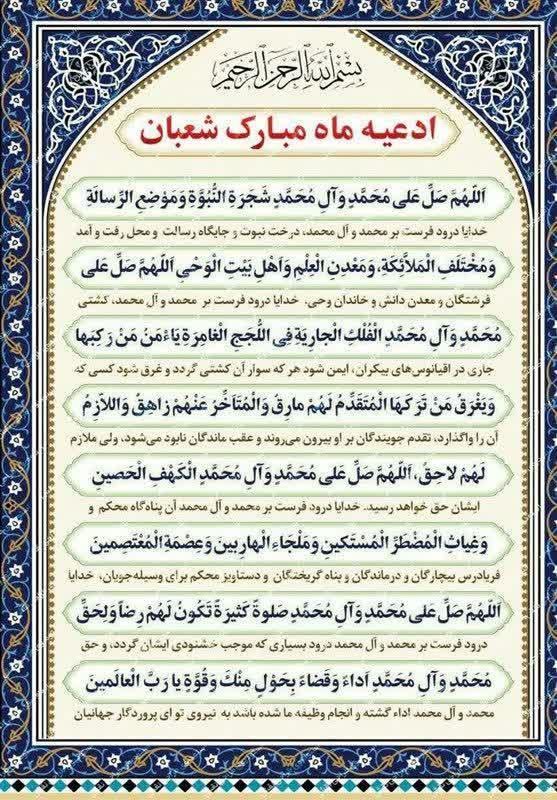 بسم الله الرحمن الرحیم
ادعیه ماه مبارک شعبان
اَللّهُمَّ صَلِّ عَلى مُحَمَّدٍ وَآلِ مُحَمَّدٍ شَجَرَةِ النُّبُوَّةِ وَمَوْضِعِ الرِّسالَةِ
خدایا درود فرست بر محمد و آل محمد، درخت نبوت و جایگاه رسالت و محل رفت و آمد
وَمُخْتَلَفِ الْمَلاَّئِكَةِ، وَمَعْدِنِ الْعِلْمِ وَاَهْلِ بَيْتِ الْوَحْىِ اَللّهُمَّ صَلِّ عَلى
فرشتگان و معدن دانش و خاندان وحی. خدایا درود فرست بر محمد و آل محمد، کشتی
مُحَمَّدٍ وَآلِ مُحَمَّدٍ الْفُلْكِ الْجارِيَةِ فِى اللُّجَجِ الْغامِرَةِ يَاءْمَنُ مَنْ رَكِبَها
جاری در اقیانوس‌های بیکران، ایمن شود هر که سوار آن کشتی گردد و غرق شود کسی که
وَيَغْرَقُ مَنْ تَرَكَهَا الْمُتَقَدِّمُ لَهُمْ مارِقٌ وَالْمُتَاَخِّرُ عَنْهُمْ زاهِقٌ وَاللاّزِمُ
آن را واگذارد، تقدم جویندگان بر او بیرون می‌روند و عقب ماندگان نابود می‌شود، ولی ملازم
لَهُمْ لاحِقٌ، اَللّهُمَّ صَلِّ عَلى مُحَمَّدٍ وَآلِ مُحَمَّدٍ الْكَهْفِ الْحَصينِ
ایشان حق خواهد رسید. خدایا درود فرست بر محمد و آل محمد آن پناه‌گاه محکم و
وَغِياثِ الْمُضْطَرِّ الْمُسْتَكينِ وَمَلْجَاءِ الْهارِبينَ وَعِصْمَةِ الْمُعْتَصِمينَ
فریادرس بیچارگان و درماندگان و پناه گریختگان و دستاویز محکم برای وسیله‌جویان، خدایا
اَللّهُمَّ صَلِّ عَلى مُحَمَّدٍ وَآلِ مُحَمَّدٍ صَلوةً كَثيرَةً تَكُونُ لَهُمْ رِضاً وَلِحَقِّ
درود فرست بر محمد و آل محمد درود بسیاری که موجب خشنودی ایشان گردد، و حق
مُحَمَّدٍ وَآلِ مُحَمَّدٍ اَداءً وَقَضاءً بِحَوْلٍ مِنْكَ وَقُوَّةٍ يا رَبَّ الْعالَمينَ
محمد و آل محمد اداء گشته و انجام وظیفه ما شده باشد به نیروی تو ای پروردگار جهانیان